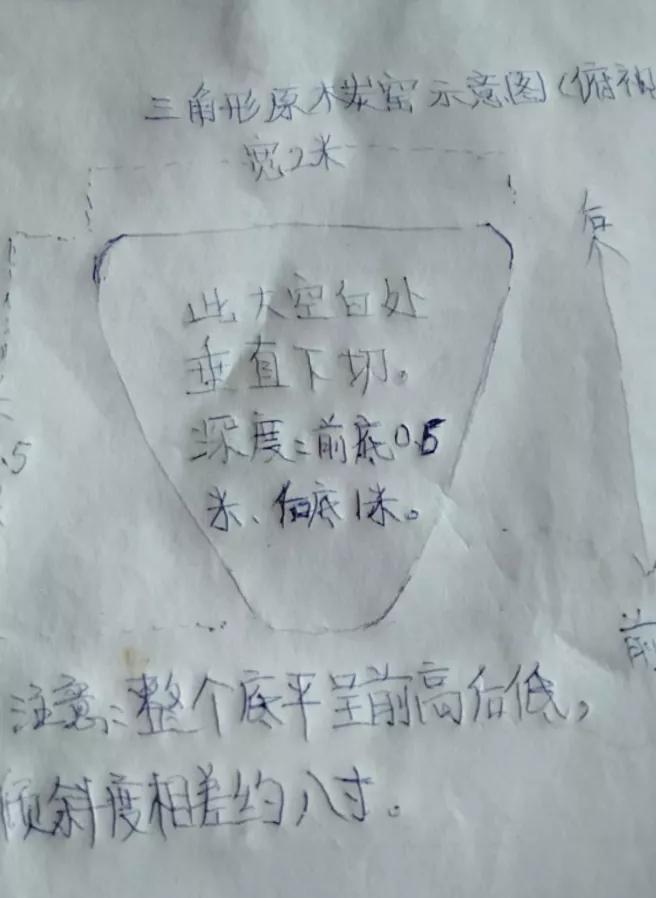 三角形原木炭窑示意图(俯视
宽2米
后
此大空白处
垂直下切。
深度:前底0.5
米、后底1米。
.5
前
注意:整个底平呈前高后低,
倾斜度相差约八寸。